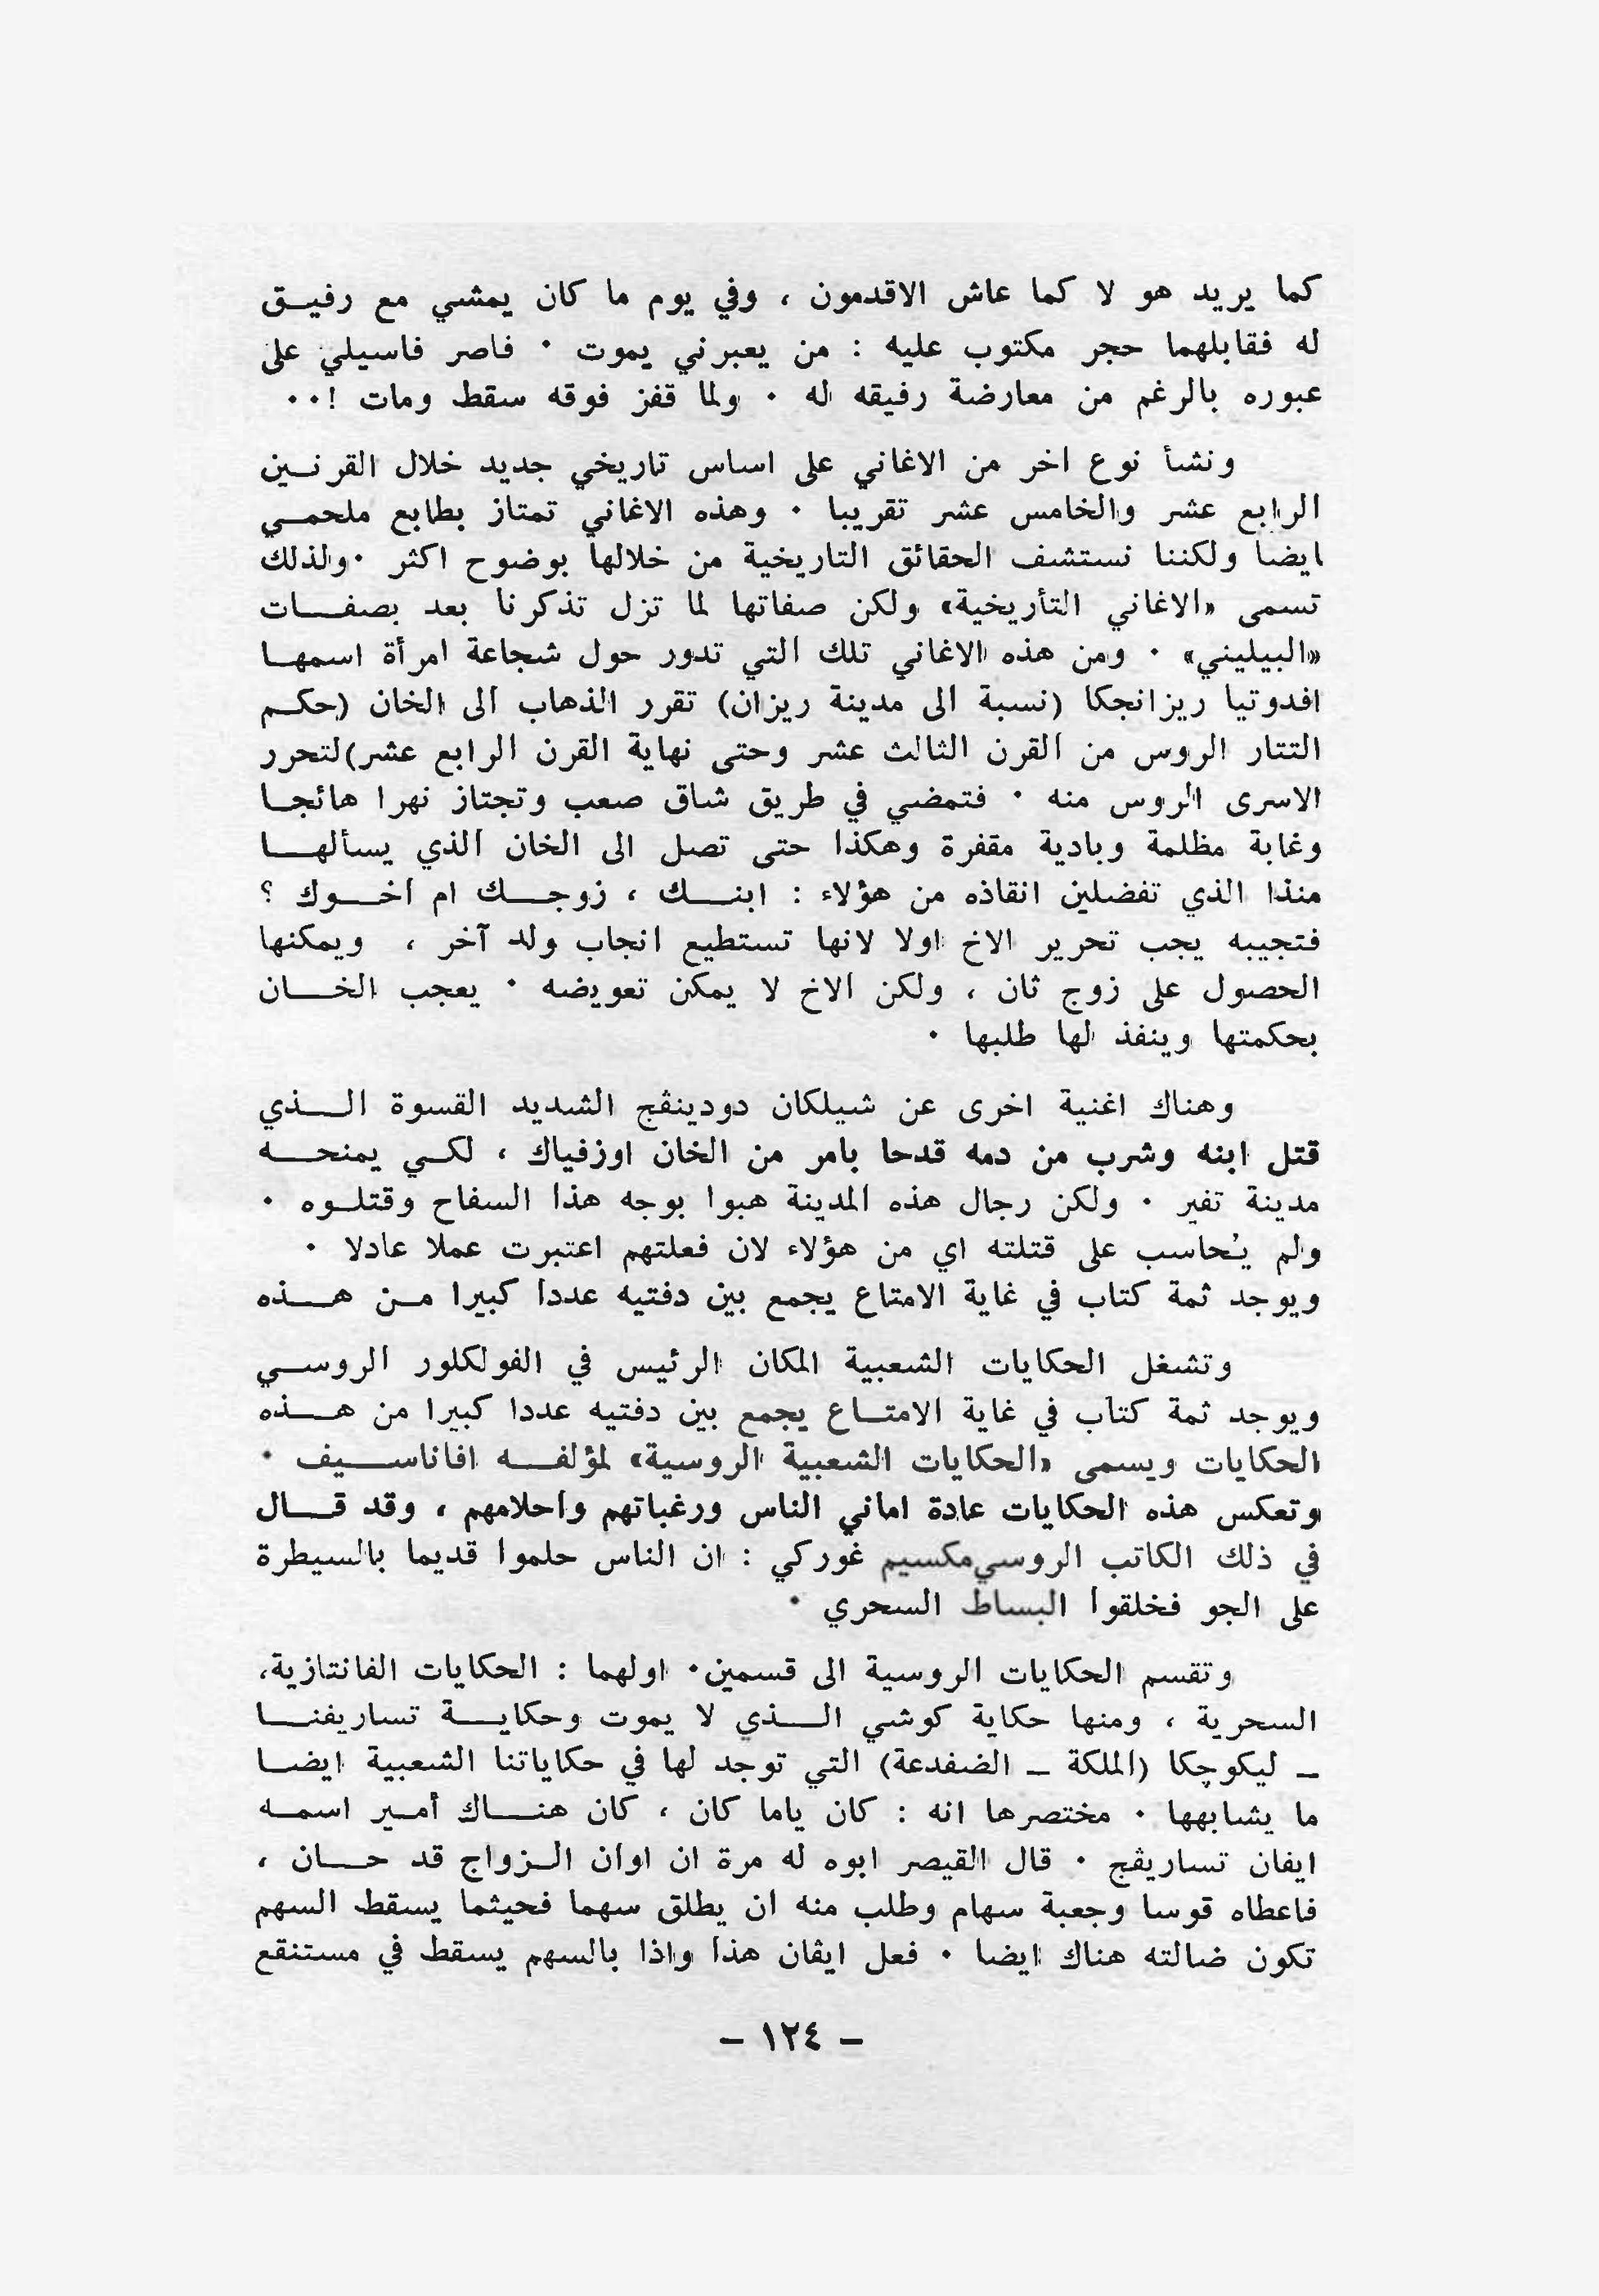 كما يريد هو لا كما عاش الاقدمون ، وفي يوم ما كان يمشي مع رفيــق
له فقابلهما حجر مكتوب عليه : من يعبرني يموت ٠ فاصر فاسيلي على
عبوره بالرغم من معارضة رفيقه له ٠ ولما قفز فوقه سقط ومات !٠٠
ونشأ نوع اخر من الاغاني على اساس تاريخي جديد خلال القرنــين
الرابع عشر والخامس عشر تقريبا ٠ وهذه الاغاني تمتاز بطابع ملحمــي
ايضا ولكننا نستشف الحقائق التاريخية من خلالها بوضوح اكثر ٠ولذلك
تسمى «الاغاني التأريخية» ولكن صفاتها لما تزل تذكرنا بعد بصفــات
«البيليني» ٠ ومن هذه الاغاني تلك التي تدور حول شجاعة امرأة اسمهــا
افدوتيا ريزانجكا (نسبة الى مدينة ريزان) تقرر الذهاب الى الخان (حكــم
التتار الروس من القرن الثالث عشر وحتى نهاية القرن الرابع عشر)لتحرر
الاسرى الروس منه ٠ فتمضي في طريق شاق صعب وتجتاز نهرا هائجــا
وغابة مظلمة وبادية مقفرة وهكذا حتى تصل الى الخان الذي يسألهــا
منذا الذي تفضلين انقاذه من هؤلاء : ابنــك ، زوجــك ام اخــوك ؟
فتجيبه يجب تحرير الاخ اولا لانها تستطيع انجاب ولد آخر ، ويمكنها
الحصول على زوج ثان ، ولكن الاخ لا يمكن تعويضه ٠ يعجب الخــان
بحكمتها وينفذ لها طلبها ٠
وهناك اغنية اخرى عن شيلكان دودينڤج الشديد القسوة الــذي
قتل ابنه وشرب من دمه قدحا بامر من الخان اوزفياك ، لكــي يمنحــه
مدينة تفير ٠ ولكن رجال هذه المدينة هبوا بوجه هذا السفاح وقتلــوه ٠
ولم يُحاسب على قتلته اي من هؤلاء لان فعلتهم اعتبرت عملا عادلا ٠
ويوجد ثمة كتاب في غاية الامتاع يجمع بين دفتيه عددا كبيرا مــن هــذه
وتشغل الحكايات الشعبية المكان الرئيس في الفولكلور الروســي
ويوجد ثمة كتاب في غاية الامتــاع يجمع بين دفتيه عددا كبيرا من هــذه
الحكايات ويسمى «الحكايات الشعبية الروسية» لمؤلفــه افاناســيف ٠
وتعكس هذه الحكايات عادة اماني الناس ورغباتهم واحلامهم ، وقد قــال
في ذلك الكاتب الروسي مكسيم غوركي : ان الناس حلموا قديما بالسيطرة
على الجو فخلقوا البساط السحري ٠
وتقسم الحكايات الروسية الى قسمين٠ اولهما : الحكايات الفانتازية،
السحرية ، ومنها حكاية كوشي الــذي لا يموت وحكايــة تساريفنــا
ــ ليكوچكا (الملكة ــ الضفدعة) التي توجد لها في حكاياتنا الشعبية ايضــا
ما يشابهها ٠ مختصرها انه : كان ياما كان ، كان هنــاك أمــير اسمــه
ايفان تساريڤج ٠ قال القيصر ابوه له مرة ان اوان الــزواج قد حــان ،
فاعطاه قوسا وجعبة سهام وطلب منه ان يطلق سهما فحيثما يسقط السهم
تكون ضالته هناك ايضا ٠ فعل ايڤان هذا واذا بالسهم يسقط في مستنقع
– ١٢٤ –